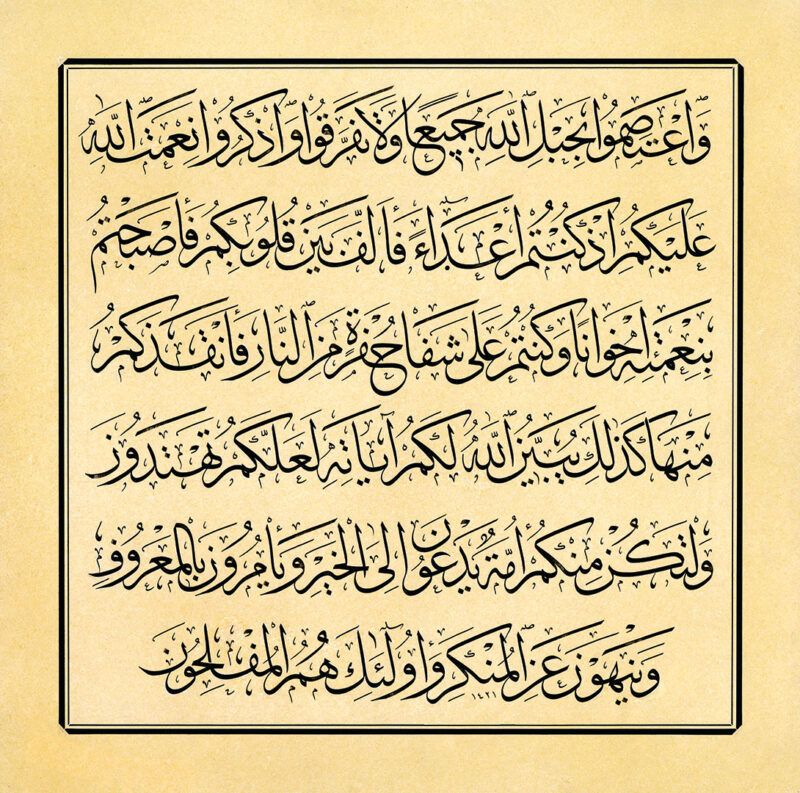 وَاعْتَصِمُوا بِحَبْلِ اللَّهِ جَمِيعًا وَلَا تَفَرَّقُوا وَاذْكُرُوا نِعْمَتَ اللَّهِ
عَلَيْكُمْ إِذْ كُنْتُمْ أَعْدَاءً فَأَلَّفَ بَيْنَ قُلُوبِكُمْ فَأَصْبَحْتُمْ
بِنِعْمَتِهِ إِخْوَانًا وَكُنْتُمْ عَلَى شَفَا حُفْرَةٍ مِنَ النَّارِ فَأَنْقَذَكُمْ
مِنْهَا كَذَلِكَ يُبَيِّنُ اللَّهُ لَكُمْ آيَاتِهِ لَعَلَّكُمْ تَهْتَدُونَ
وَلْتَكُنْ مِنْكُمْ أُمَّةٌ يَدْعُونَ إِلَى الْخَيْرِ وَيَأْمُرُونَ بِالْمَعْرُوفِ
وَيَنْهَوْنَ عَنِ الْمُنْكَرِ وَأُولَئِكَ هُمُ الْمُفْلِحُونَ ١٤٢١